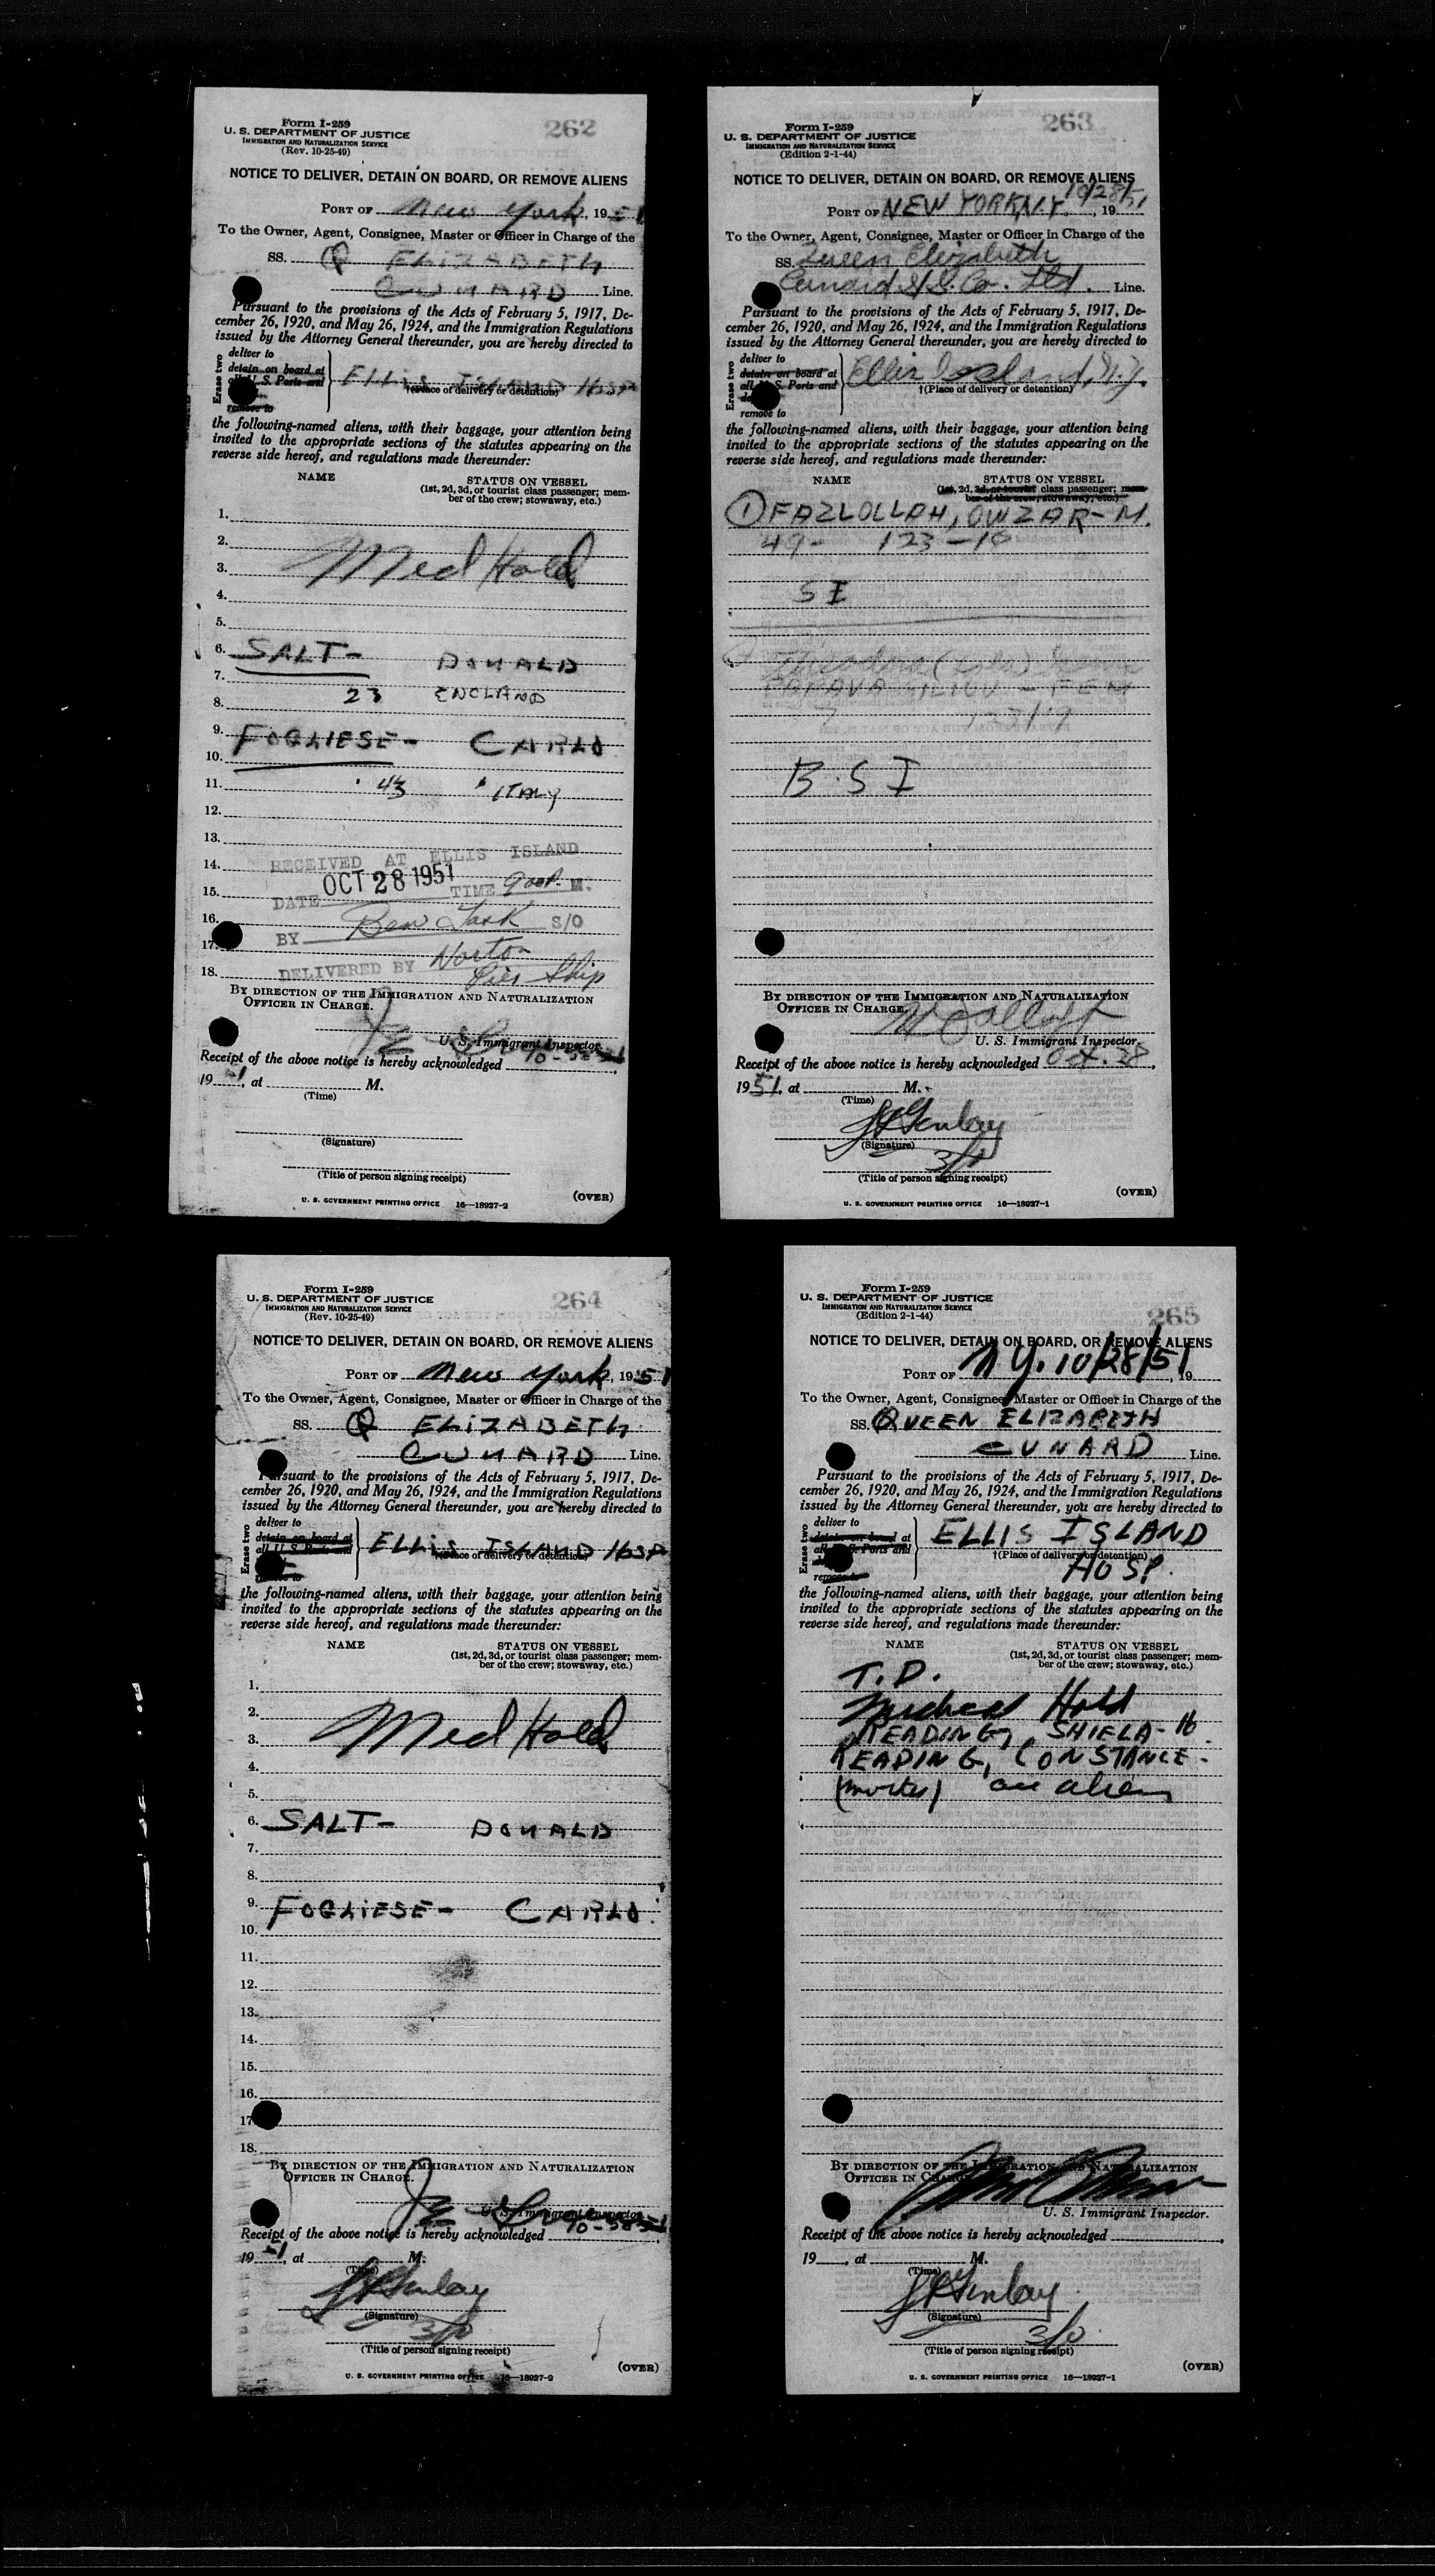 Form I-259
U. S. DEPARTMENT OF JUSTICE
IMMIGRATION AND NATURALIZATION SERVICE
(Rev. 10-25-49)
262
NOTICE TO DELIVER, DETAIN ON BOARD, OR REMOVE ALIENS
PORT OF New York, 1951
To the Owner, Agent, Consignee, Master or Officer in Charge of the
SS. Q ELIZABETH
CUNARD Line.
Pursuant to the provisions of the Acts of February 5, 1917, De-
cember 26, 1920, and May 26, 1924, and the Immigration Regulations
issued by the Attorney General thereunder, you are hereby directed to
Erase two
deliver to
detain on board at
all U. S. Ports and
remove to
ELLIS ISLAND HOSP
†(Place of delivery or detention)
the following-named aliens, with their baggage, your attention being
invited to the appropriate sections of the statutes appearing on the
reverse side hereof, and regulations made thereunder:
NAME STATUS ON VESSEL
(1st, 2d, 3d, or tourist class passenger; mem-
ber of the crew; stowaway, etc.)
1.
2.
3. Med Hold
4.
5.
6. SALT- DONALD
7.
23 ENGLAND
8.
9. FOGLIESE- CARLO
10.
11. 43 ITALY
12.
13.
14. RECEIVED AT ELLIS ISLAND
15. DATE OCT 28 1951 TIME 9 00 P. M.
16.
BY Ben S/O
17. Norton
18. DELIVERED BY Pier Ship
BY DIRECTION OF THE IMMIGRATION AND NATURALIZATION
OFFICER IN CHARGE.
U. S. Immigrant Inspector.
Receipt of the above notice is hereby acknowledged 10-28-51,
1951, at M.
(Time)
(Signature)
(Title of person signing receipt)
(OVER)
U. S. GOVERNMENT PRINTING OFFICE 16—18927-2
Form I-259
U. S. DEPARTMENT OF JUSTICE
IMMIGRATION AND NATURALIZATION SERVICE
(Edition 2-1-44)
263
NOTICE TO DELIVER, DETAIN ON BOARD, OR REMOVE ALIENS
PORT OF NEW YORK, N.Y. 10/28/51, 19
To the Owner, Agent, Consignee, Master or Officer in Charge of the
SS. Queen Elizabeth
Cunard S/S. Co. Ltd. Line.
Pursuant to the provisions of the Acts of February 5, 1917, De-
cember 26, 1920, and May 26, 1924, and the Immigration Regulations
issued by the Attorney General thereunder, you are hereby directed to
Erase two
deliver to
detain on board at
all U. S. Ports and
remove to
Ellis Island, N.Y.
†(Place of delivery or detention)
the following-named aliens, with their baggage, your attention being
invited to the appropriate sections of the statutes appearing on the
reverse side hereof, and regulations made thereunder:
NAME STATUS ON VESSEL
(1st, 2d, 3d, or tourist class passenger; mem-
ber of the crew; stowaway, etc.)
① FAZLOLLAH, OWZAR-M.
49- 123-10
S I
- FEM
B.S I
BY DIRECTION OF THE IMMIGRATION AND NATURALIZATION
OFFICER IN CHARGE.
U. S. Immigrant Inspector.
Receipt of the above notice is hereby acknowledged Oct. 28,
1951, at M.
(Time)
(Signature)
3/O
(Title of person signing receipt)
(OVER)
U. S. GOVERNMENT PRINTING OFFICE 16—18927-1
Form I-259
U. S. DEPARTMENT OF JUSTICE
IMMIGRATION AND NATURALIZATION SERVICE
(Rev. 10-25-49)
264
NOTICE TO DELIVER, DETAIN ON BOARD, OR REMOVE ALIENS
PORT OF New York, 1951
To the Owner, Agent, Consignee, Master or Officer in Charge of the
SS. Q ELIZABETH
CUNARD Line.
Pursuant to the provisions of the Acts of February 5, 1917, De-
cember 26, 1920, and May 26, 1924, and the Immigration Regulations
issued by the Attorney General thereunder, you are hereby directed to
Erase two
deliver to
detain on board at
all U. S. Ports and
remove to
ELLIS ISLAND HOSP
†(Place of delivery or detention)
the following-named aliens, with their baggage, your attention being
invited to the appropriate sections of the statutes appearing on the
reverse side hereof, and regulations made thereunder:
NAME STATUS ON VESSEL
(1st, 2d, 3d, or tourist class passenger; mem-
ber of the crew; stowaway, etc.)
1.
2.
3. Med Hold
4.
5.
6. SALT- DONALD
7.
8.
9. FOGLIESE- CARLO.
10.
11.
12.
13.
14.
15.
16.
17.
18.
BY DIRECTION OF THE IMMIGRATION AND NATURALIZATION
OFFICER IN CHARGE.
U. S. Immigrant Inspector.
Receipt of the above notice is hereby acknowledged 10-28-51,
1951, at M.
(Time)
(Signature)
3/O
(Title of person signing receipt)
(OVER)
U. S. GOVERNMENT PRINTING OFFICE 16—18927-2
Form I-259
U. S. DEPARTMENT OF JUSTICE
IMMIGRATION AND NATURALIZATION SERVICE
(Edition 2-1-44)
265
NOTICE TO DELIVER, DETAIN ON BOARD, OR REMOVE ALIENS
PORT OF N Y. 10/28/51, 19
To the Owner, Agent, Consignee, Master or Officer in Charge of the
SS. QUEEN ELIZABETH
CUNARD Line.
Pursuant to the provisions of the Acts of February 5, 1917, De-
cember 26, 1920, and May 26, 1924, and the Immigration Regulations
issued by the Attorney General thereunder, you are hereby directed to
Erase two
deliver to
detain on board at
all U. S. Ports and
remove to
ELLIS ISLAND
†(Place of delivery or detention)
HOSP.
the following-named aliens, with their baggage, your attention being
invited to the appropriate sections of the statutes appearing on the
reverse side hereof, and regulations made thereunder:
NAME STATUS ON VESSEL
(1st, 2d, 3d, or tourist class passenger; mem-
ber of the crew; stowaway, etc.)
T.D.
Medical Hold
READING, SHIELA-16.
READING, CONSTANCE-
(mother) acc alien
BY DIRECTION OF THE IMMIGRATION AND NATURALIZATION
OFFICER IN CHARGE.
U. S. Immigrant Inspector.
Receipt of the above notice is hereby acknowledged
19, at M.
(Time)
(Signature)
3/O.
(Title of person signing receipt)
(OVER)
U. S. GOVERNMENT PRINTING OFFICE 16—18927-1